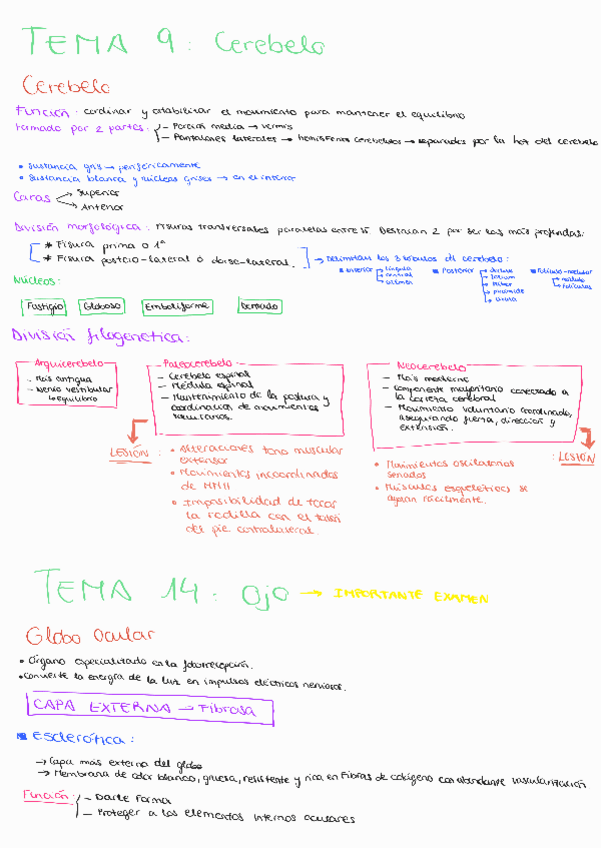 TEMA 9: Cerebelo
Cerebelo
Función: cordinar y estabilizar el movimiento para mantener el equilibrio
Formado por 2 partes: - Porción media → vermis
- Porciones laterales → hemisferios cerebelosos → separados por la hoz del cerebelo
• Sustancia gris → periféricamente
• Sustancia blanca y núcleos grises → en el interior
Caras → Superior
→ Anterior
División morfológica: Fisuras transversales paralelas entre sí. Destacan 2 por ser las más profundas:
* Fisura prima o 1ª
* Fisura postero-lateral o dorso-lateral.
→ Delimitan los 3 lóbulos del cerebelo:
Anterior → língula
→ central
→ culmen
Posterior → declive
→ folium
→ túber
→ pirámide
→ úvula
Flóculo-nodular
→ nódulo
→ flóculos
Núcleos:
Fastigio
Globoso
Emboliforme
Dentado
División filogenética:
Arquicerebelo
- Más antigua
- Nervio vestibular
↳ equilibrio
Paleocerebelo
- Cerebelo espinal
- Médula espinal
- Mantenimiento de la postura y
coordinación de movimientos
LESIÓN: • Alteraciones tono muscular
extensor
• Movimientos incoordinados
de MMII
• Imposibilidad de tocar
la rodilla con el talón
del pie contralateral
Neocerebelo
- Más moderno
- Componente mayoritario conectado a
la corteza cerebral
- Movimiento voluntario coordinado,
asegurando fuerza, dirección y
extensión.
: LESIÓN
• Movimientos oscilatorios
• Músculos esqueléticos se
fácilmente.
TEMA 14: Ojo → IMPORTANTE EXAMEN
Globo Ocular
• Órgano especializado en la fotorrecepción.
• Convierte la energía de la luz en impulsos eléctricos nerviosos.
CAPA EXTERNA → Fibrosa
Esclerótica:
→ Capa más externa del globo
→ Membrana de color blanco, gruesa, resistente y rica en fibras de colágeno con abundante vascularización
Función: - Darle forma
- Proteger a los elementos internos oculares